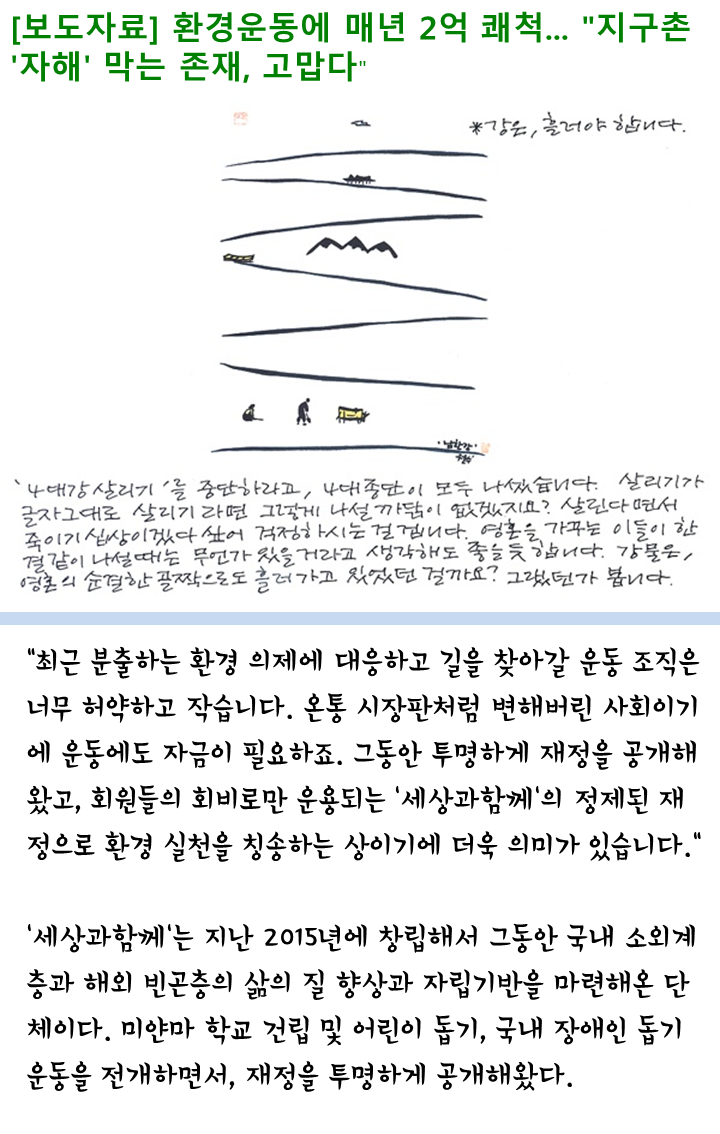 [보도자료] 환경운동에 매년 2억 쾌척... "지구촌
'자해' 막는 존재, 고맙다"
*강은, 흘러야 합니다.
'4대강 살리기'를 중단하라고, 4대종단이 모두 나섰습니다. 살리기가
글자그대로 살리기라면 그렇게 나설 까닭이 없겠지요? 살린다면서
죽이기 십상이겠다 싶어 걱정하시는 걸 겝니다. 영혼을 가꾸는 이들이 한
결같이 나설 때는 무언가 있을거라고 생각해도 좋을 듯 합니다. 강물은,
영혼의 순결한 골짝으로도 흘러가고 있었던 걸까요? 그랬던가 봅니다.
"최근 분출하는 환경 의제에 대응하고 길을 찾아갈 운동 조직은
너무 허약하고 작습니다. 온통 시장판처럼 변해버린 사회이기
에 운동에도 자금이 필요하죠. 그동안 투명하게 재정을 공개해
왔고, 회원들의 회비로만 운용되는 '세상과함께'의 정제된 재
정으로 환경 실천을 칭송하는 상이기에 더욱 의미가 있습니다."
'세상과함께'는 지난 2015년에 창립해서 그동안 국내 소외계
층과 해외 빈곤층의 삶의 질 향상과 자립기반을 마련해온 단
체이다. 미얀마 학교 건립 및 어린이 돕기, 국내 장애인 돕기
운동을 전개하면서, 재정을 투명하게 공개해왔다.